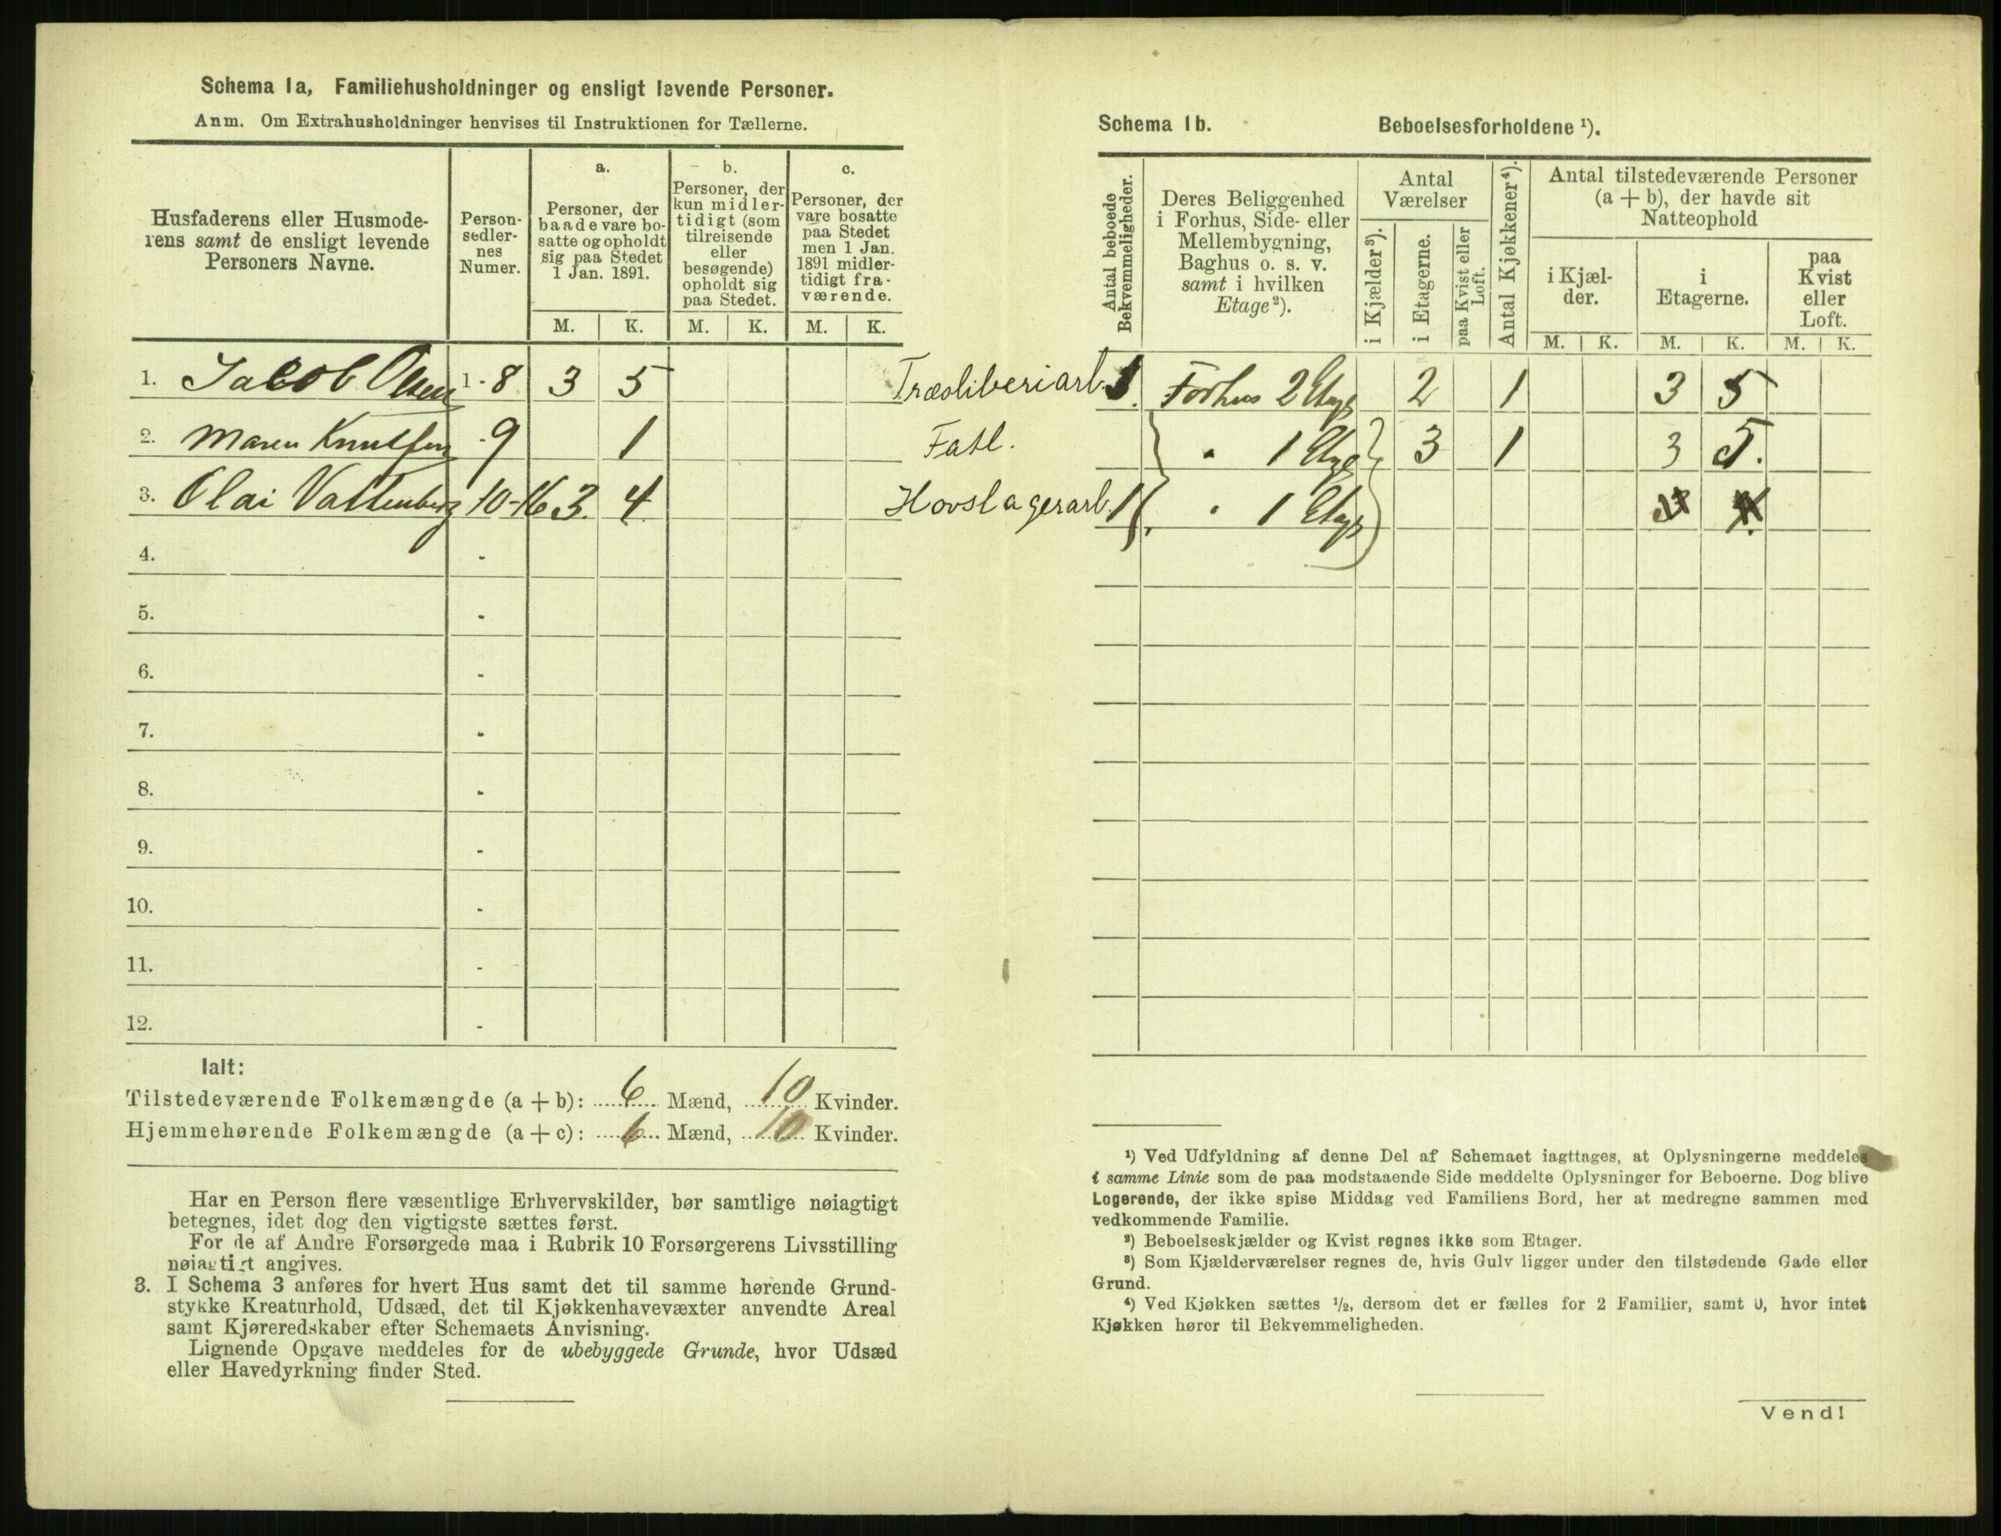 Schema 1a, Familiehusholdninger og ensligt levende Personer.
Anm. Om Extrahusholdninger henvises til Instruktionen for Tællerne.
Husfaderens eller Husmode-
rens samt de ensligt levende
Personers Navne.
Person-
sedler-
nes
Numer.
a.
Personer, der
baade vare bo-
satte og opholdt
sig paa Stedet
1 Jan. 1891.
b.
Personer, der
kun midler-
tidigt (som
tilreisende
eller
besøgende)
opholdt sig
paa Stedet.
c.
Personer, der
vare bosatte
paa Stedet
men 1 Jan.
1891 midler-
tidigt fra-
værende.
M. K. M. K. M. K.
1. Jacob Olsen 1 - 8 3 5
2. Maren Knutsen - 9 1
3. Olai Vattenberg 10-16 3. 4
4. -
5. -
6. -
7. -
8. -
9. -
10. -
11. -
12. -
Ialt:
Tilstedeværende Folkemængde (a + b): 6 Mænd, 10 Kvinder.
Hjemmehørende Folkemængde (a + c): 6 Mænd, 10 Kvinder.
Har en Person flere væsentlige Erhvervskilder, bør samtlige nøiagtigt
betegnes, idet dog den vigtigste sættes først.
For de af Andre Forsørgede maa i Rubrik 10 Forsørgerens Livsstilling
nøiagtigt angives.
3. I Schema 3 anføres for hvert Hus samt det til samme hørende Grund-
stykke Kreaturhold, Udsæd, det til Kjøkkenhavevæxter anvendte Areal
samt Kjøreredskaber efter Schemaets Anvisning.
Lignende Opgave meddeles for de ubebyggede Grunde, hvor Udsæd
eller Havedyrkning finder Sted.
Schema 1b. Beboelsesforholdene ¹).
Antal beboede
Bekvemmeligheder.
Deres Beliggenhed
i Forhus, Side- eller
Mellembygning,
Baghus o. s. v.
samt i hvilken
Etage²).
Antal
Værelser
i Kjælder³).
i Etagerne.
paa Kvist eller
Loft.
Antal Kjøkkener⁴).
Antal tilstedeværende Personer
(a + b), der havde sit
Natteophold
i Kjæl-
der.
i
Etagerne.
paa
Kvist
eller
Loft.
M. K. M. K. M. K.
Træsliberiarb. 1. Forhus 2 Etage 2 1 3 5
Fatl. " 1 Etage 3 1 3 5.
Hovslagerarb. 1. " 1 Etage
¹) Ved Udfyldning af denne Del af Schemaet iagttages, at Oplysningerne meddeles
i samme Linie som de paa modstaaende Side meddelte Oplysninger for Beboerne. Dog blive
Logerende, der ikke spise Middag ved Familiens Bord, her at medregne sammen med
vedkommende Familie.
²) Beboelseskjælder og Kvist regnes ikke som Etager.
³) Som Kjælderværelser regnes de, hvis Gulv ligger under den tilstødende Gade eller
Grund.
⁴) Ved Kjøkken sættes ½, dersom det er fælles for 2 Familier, samt 0, hvor intet
Kjøkken hører til Bekvemmeligheden.
Vend!